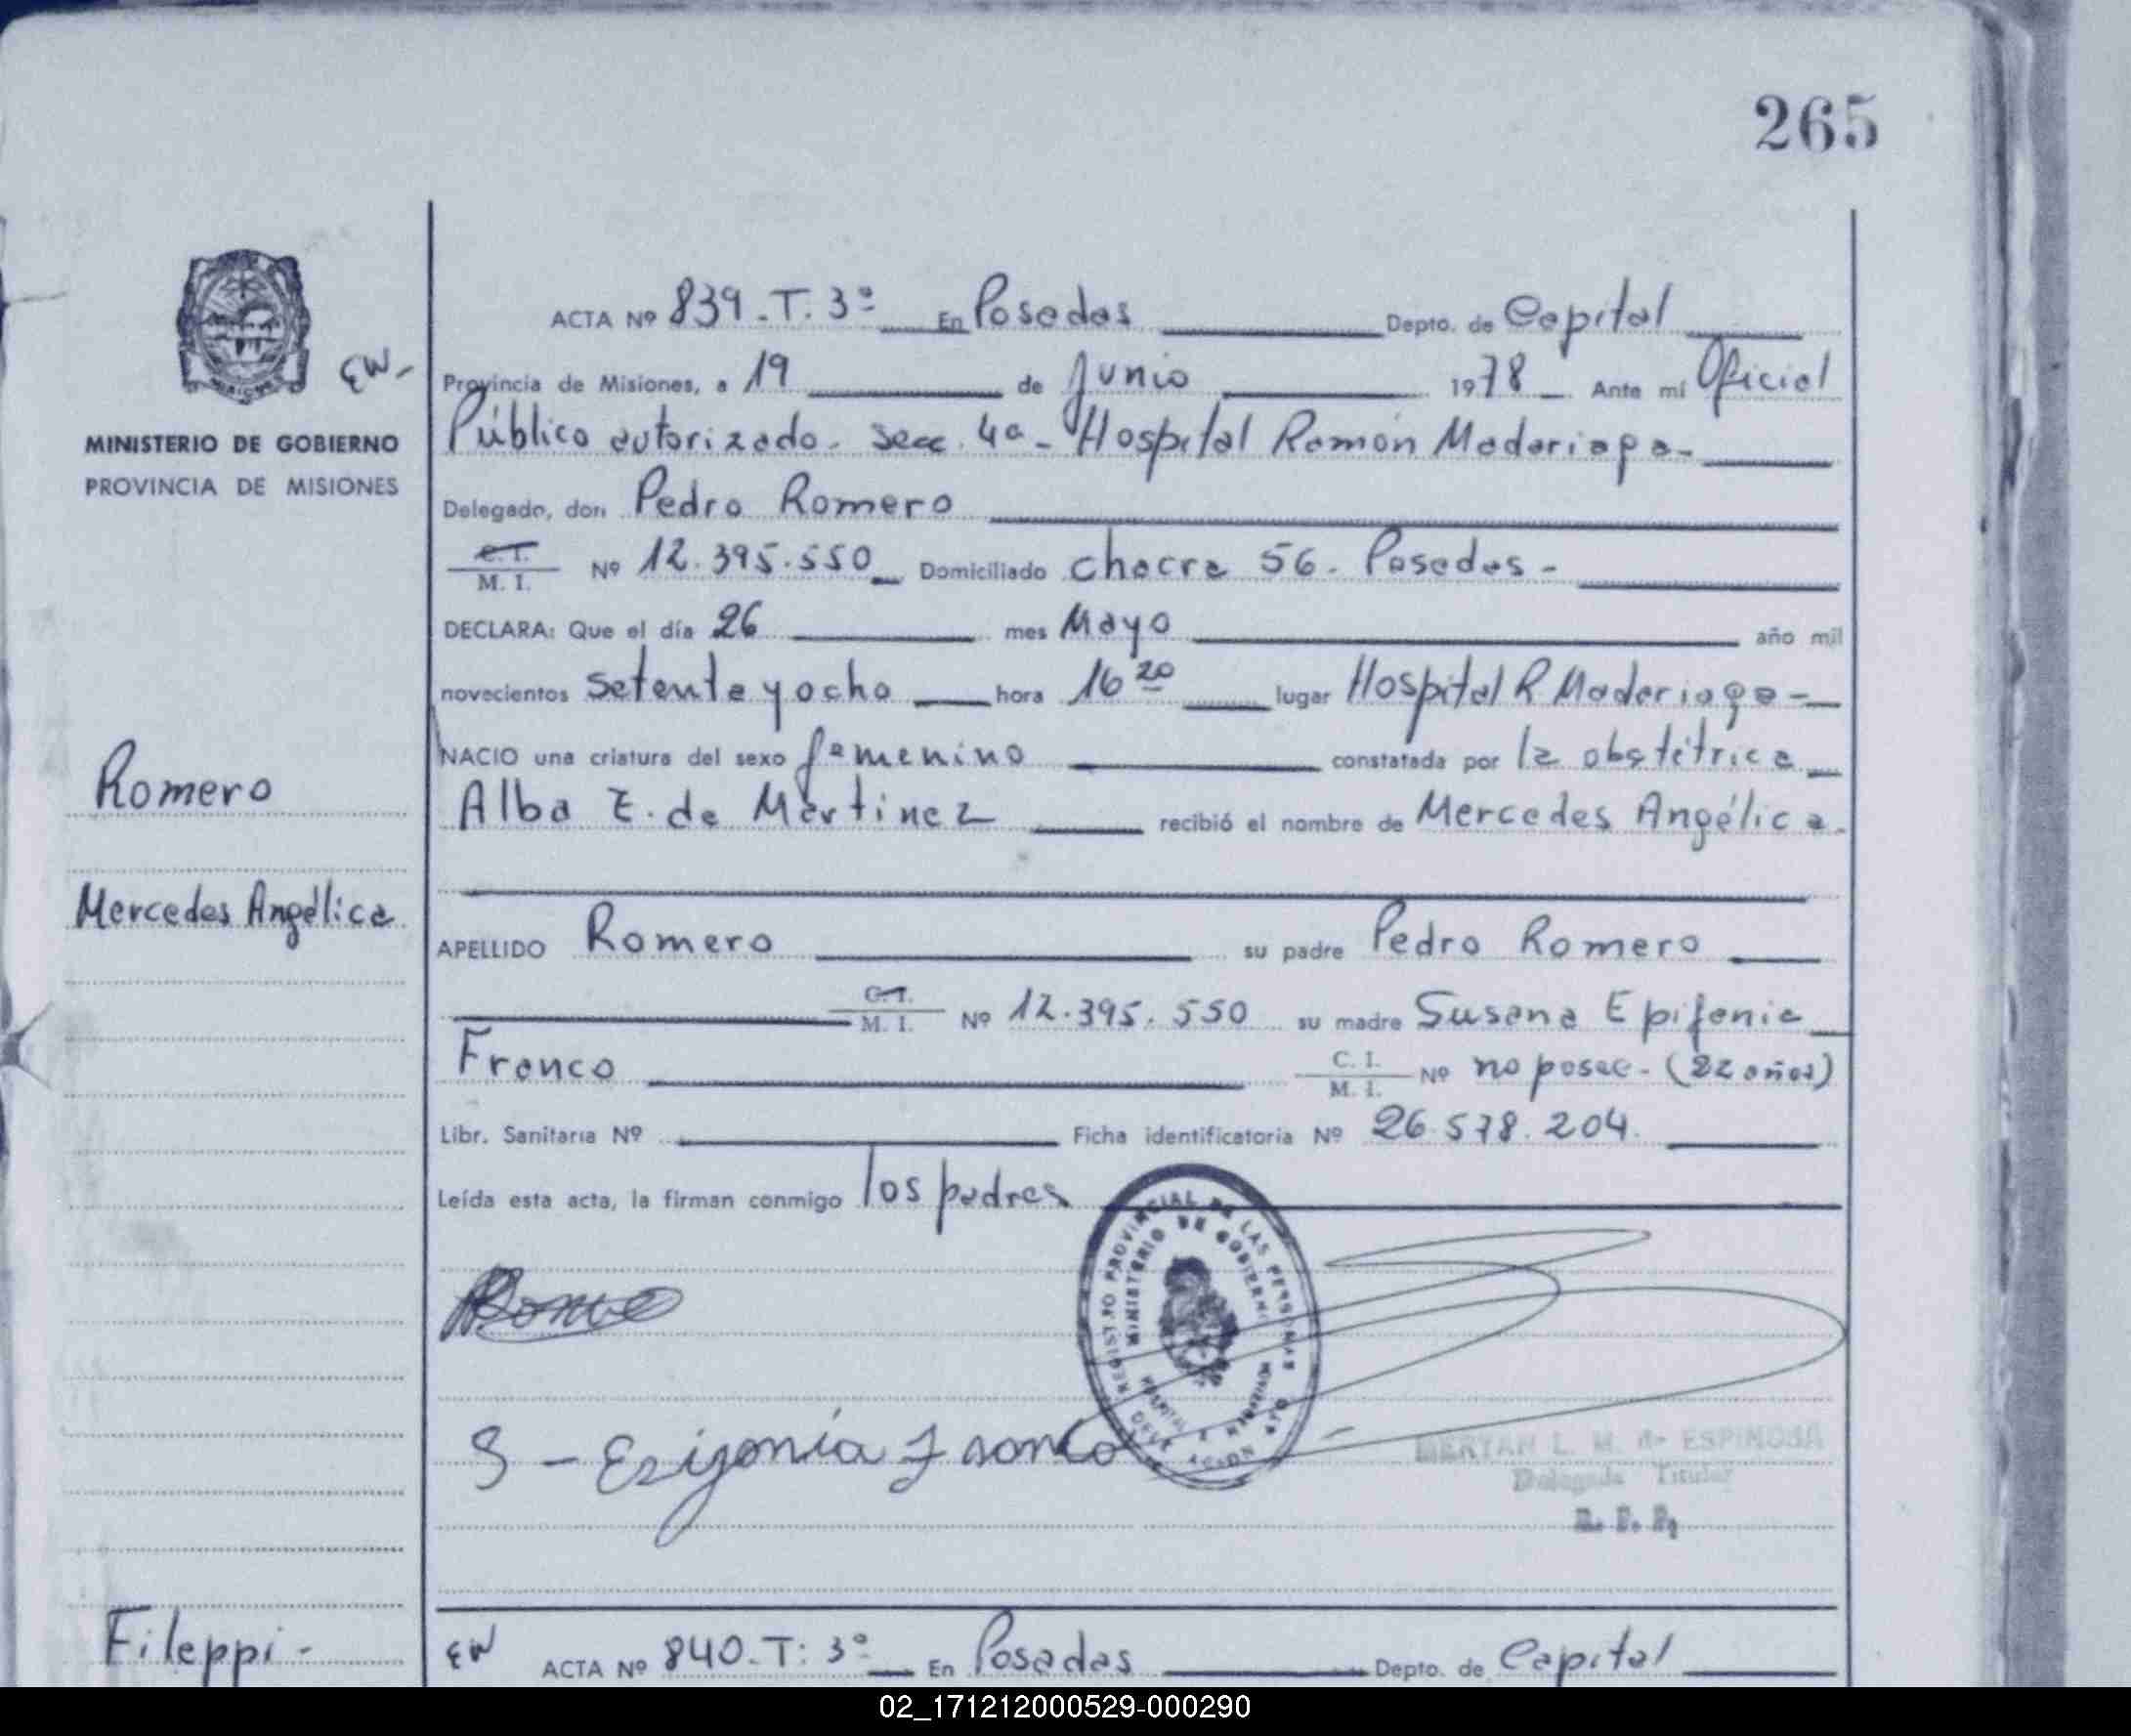 265
ACTA Nº 839.T.3º En Posadas Depto. de Capital
EW- Provincia de Misiones, a 19 de Junio 1978 Ante mí Oficial
MINISTERIO DE GOBIERNO
PROVINCIA DE MISIONES
Público autorizado. Secc. 4a - Hospital Ramón Madariaga-
Delegado, don Pedro Romero
C.I. M.I. Nº 12.395.550 Domiciliado chacra 56. Posadas-
DECLARA: Que el día 26 mes Mayo año mil
novecientos setenta y ocho hora 16 20 lugar Hospital R Madariaga-
NACIO una criatura del sexo femenino constatada por la obstétrica
Romero
Alba E. de Martinez recibió el nombre de Mercedes Angélica.
Mercedes Angélica
APELLIDO Romero su padre Pedro Romero
C.I. M.I. Nº 12.395.550 su madre Susana Epifania
Franco C.I. M.I. Nº no posee- (22 años)
Libr. Sanitaria Nº Ficha identificatoria Nº 26.578.204.
Leída esta acta, la firman conmigo los padres
REGISTRO PROVINCIAL DE LAS PERSONAS
MINISTERIO DE GOBIERNO
S -
L. M. de ESPINOSA
Delegada Titular
R. P. P.
Fileppi-
EW ACTA Nº 840.T: 3º En Posadas Depto. de Capital
02_171212000529-000290